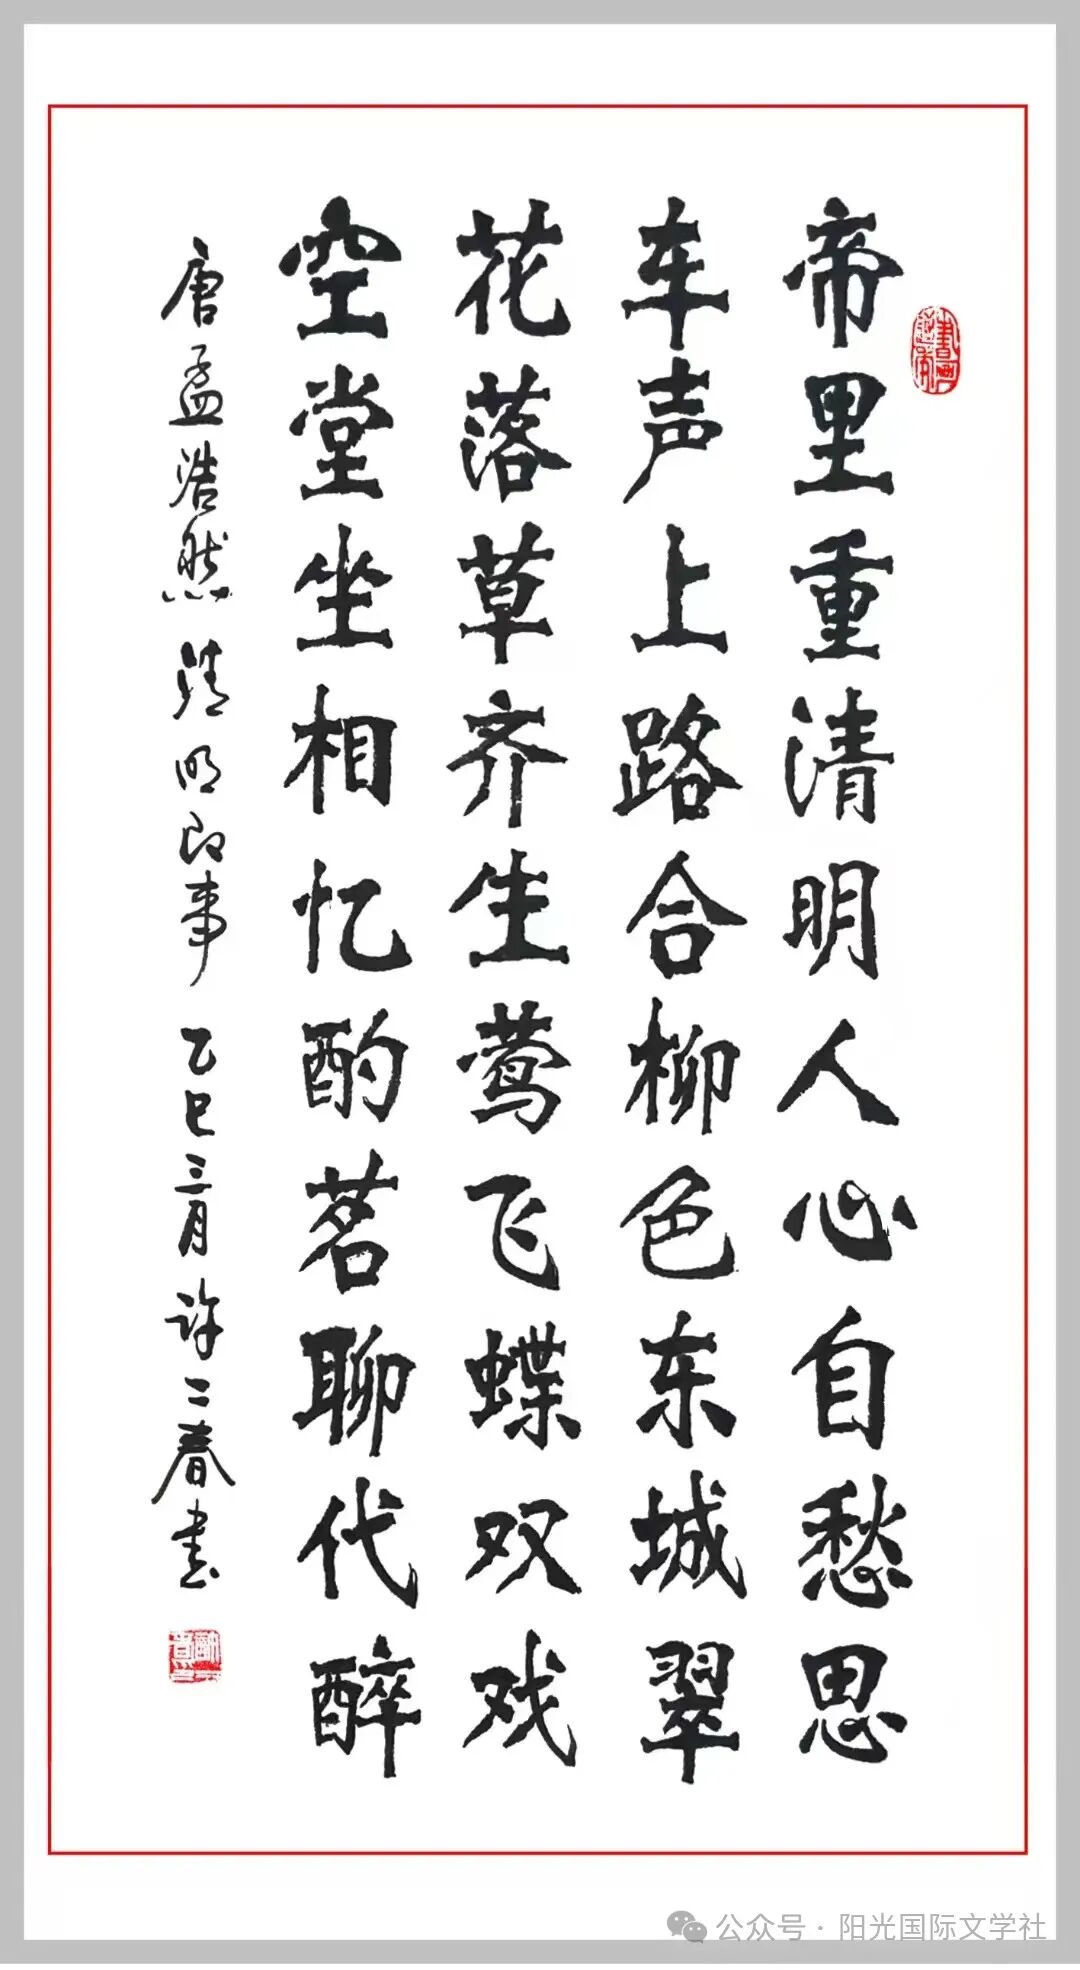 帝里重清明人心自愁思
车声上路合柳色东城翠
花落草齐生莺飞蝶双戏
空堂坐相忆酌茗聊代醉
唐孟浩然清明即事乙巳三月许二春书
公众号·阳光国际文学社